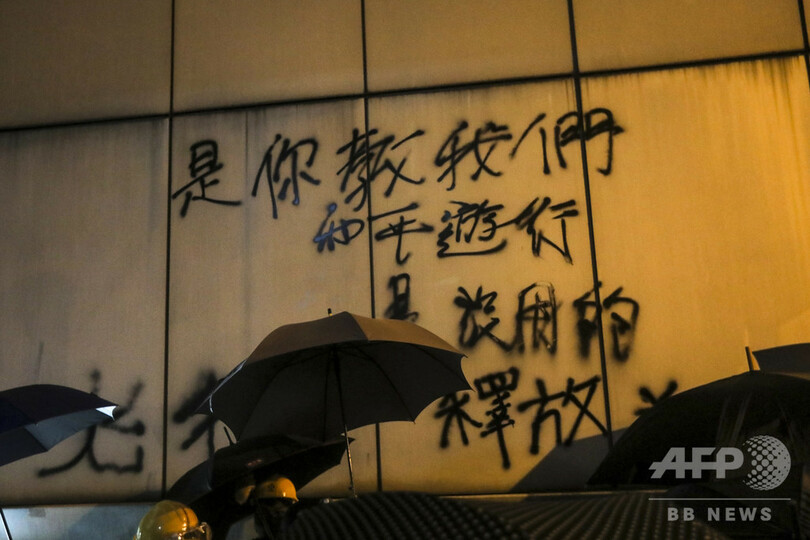 是你教我們
和平遊行
是沒用的
釋放
AFP
BB NEWS